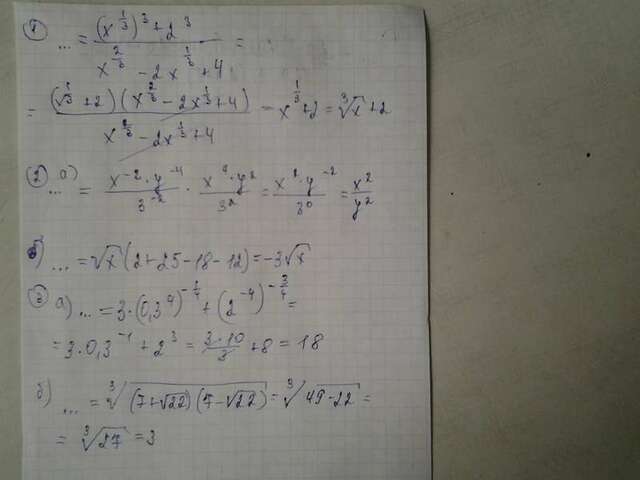 ① ... = ((x^(1/3))^3 + 2^3) / (x^(2/3) - 2x^(1/3) + 4) =
= ((x^(1/3) + 2)(x^(2/3) - 2x^(1/3) + 4)) / (x^(2/3) - 2x^(1/3) + 4) = x^(1/3) + 2 = ∛x + 2
② а) ... = (x^(-2) · y^(-4)) / 3^(-2) · (x^4 · y^2) / 3^2 = (x^2 · y^(-2)) / 3^0 = x^2 / y^2
б) ... = √x (2+25-18-12) = -3√x
③ а) ... = 3·(0,3^4)^(-1/4) + (2^(-4))^(-3/4) =
= 3·0,3^(-1) + 2^3 = (3·10)/3 + 8 = 18
б) ... = ∛((7+√22)(7-√22)) = ∛(49-22) =
= ∛27 = 3